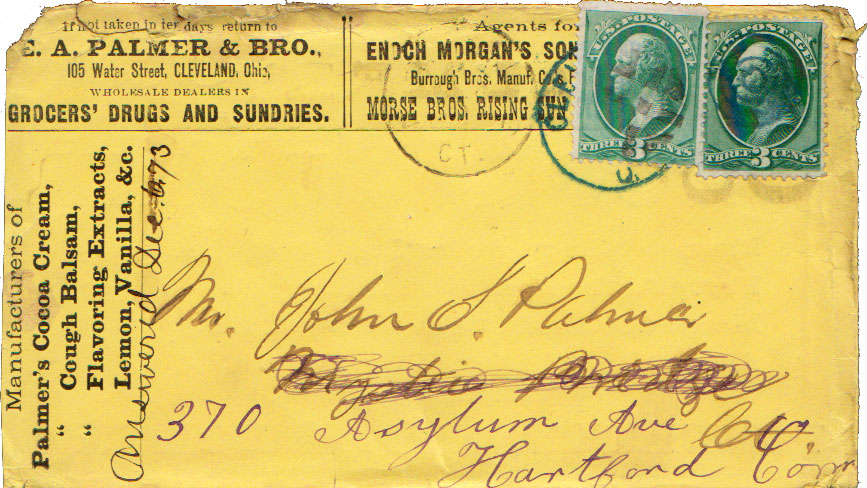 If not taken in ten days return to
E. A. PALMER & BRO.,
105 Water Street, CLEVELAND, Ohio,
WHOLESALE DEALERS IN
GROCERS' DRUGS AND SUNDRIES.
Agents for
ENOCH MORGAN'S SON
Burrough Bros. Manuf. Co's
MORSE BROS. RISING SUN
U.S. POSTAGE
THREE 3 CENTS
U.S. POSTAGE
THREE 3 CENTS
CT.
O.
Manufacturers of
Palmer's Cocoa Cream,
" Cough Balsam,
" Flavoring Extracts,
Lemon, Vanilla, &c.
Answered Dec. 6. 73
Mr. John S. Palmer
Mystic Bridge
370 Asylum Ave
Hartford Conn